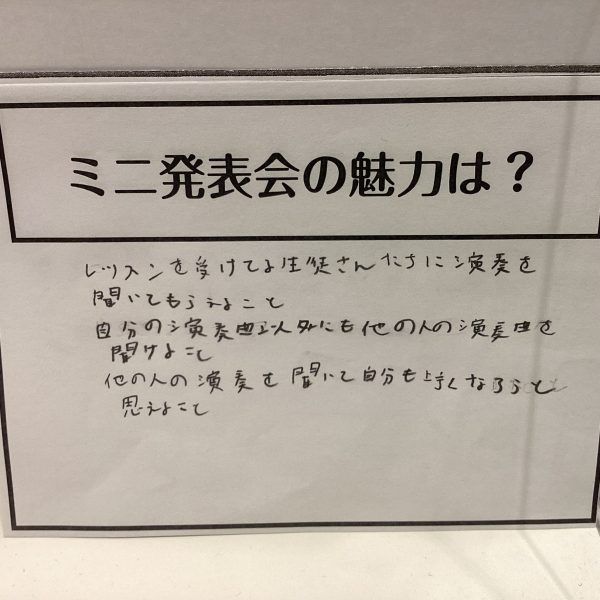 ミニ発表会の魅力は？
レッスンを受けてる生徒さんたちに演奏を
聞いてもらえること
自分の演奏曲以外にも他の人の演奏曲を
聞けること
他の人の演奏を聞いて自分も上手くなろうと
思えること